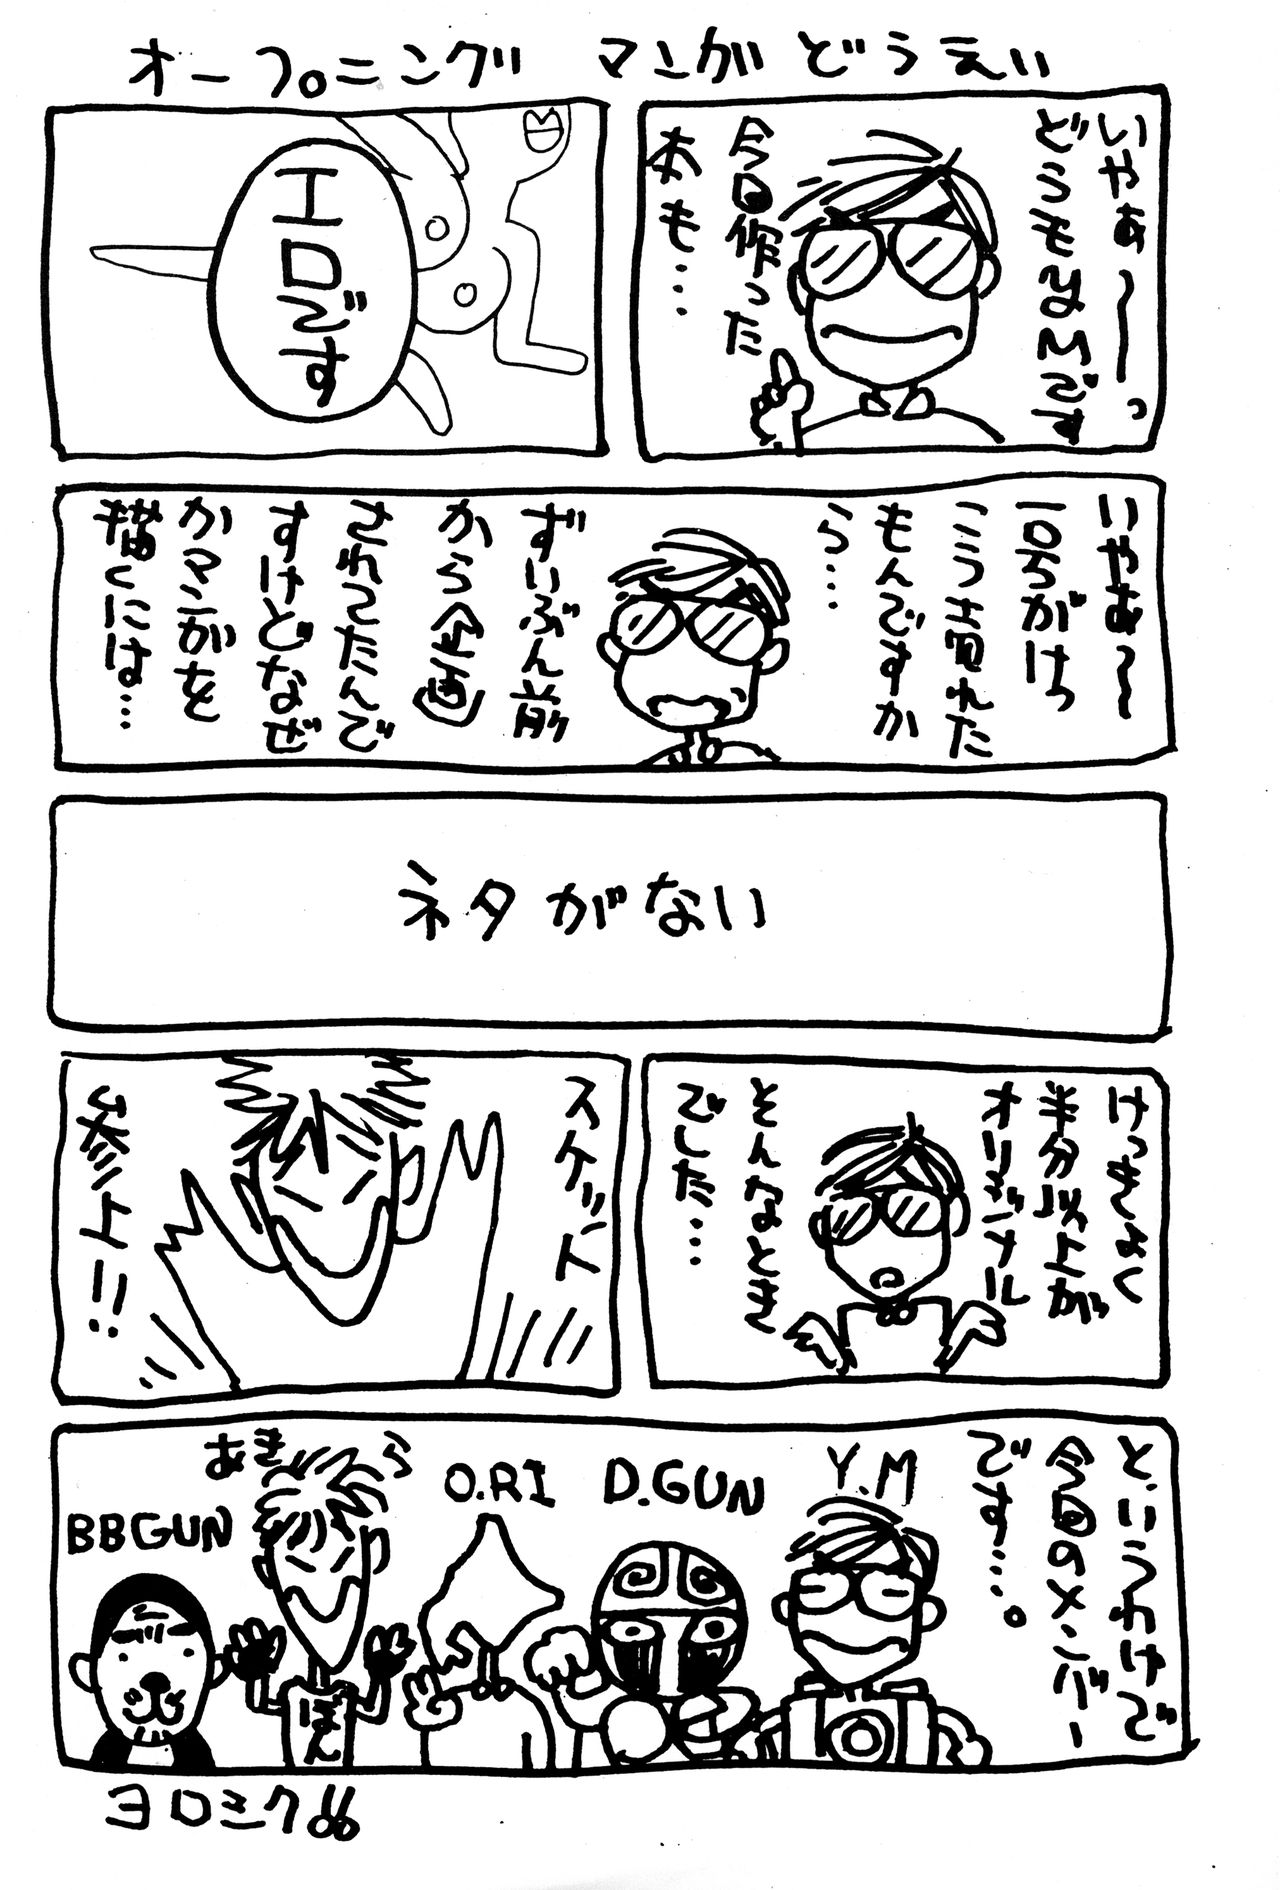 オープニング マンガ どうえい
いやぁ〜〜っ
どうもY.Mです
今回作った
本も…
エロです
いやぁ〜〜
一号がけっ
こう売れた
もんですか
ら…
ずいぶん前
から企画
されてたんで
すけどなぜ
かマンガを
描くには…
ネタがない
けっきょく
半分以上が
オリジナル
そんなとき
でした…
スケット
参上!!
と、いうわけで
今回のメンバー
です…。
Y.M
D.GUN
O.RI
あきら
ぼん
BBGUN
ヨロシク!!